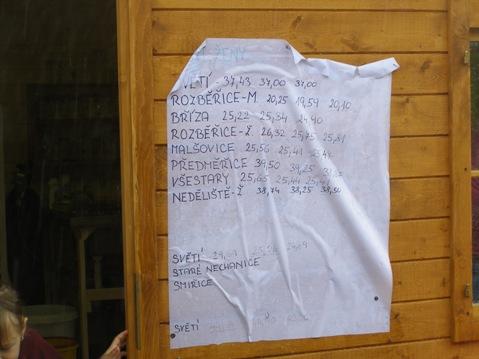 ŽENY
SVĚTÍ - 37,43 37,00 37,00
ROZBĚŘICE-M 20,25 19,59 20,10
BŘÍZA 25,22 25,34 24,40
ROZBĚŘICE-Ž 26,32 25,75
MALŠOVICE 25,56 25,41
PŘEDMĚŘICE 39,50 39,25
VŠESTARY 25,65 25,44
NEDĚLIŠTĚ-Ž 38,74 38,25 38,50
SVĚTÍ
STARÉ NECHANICE
SMIŘICE
SVĚTÍ